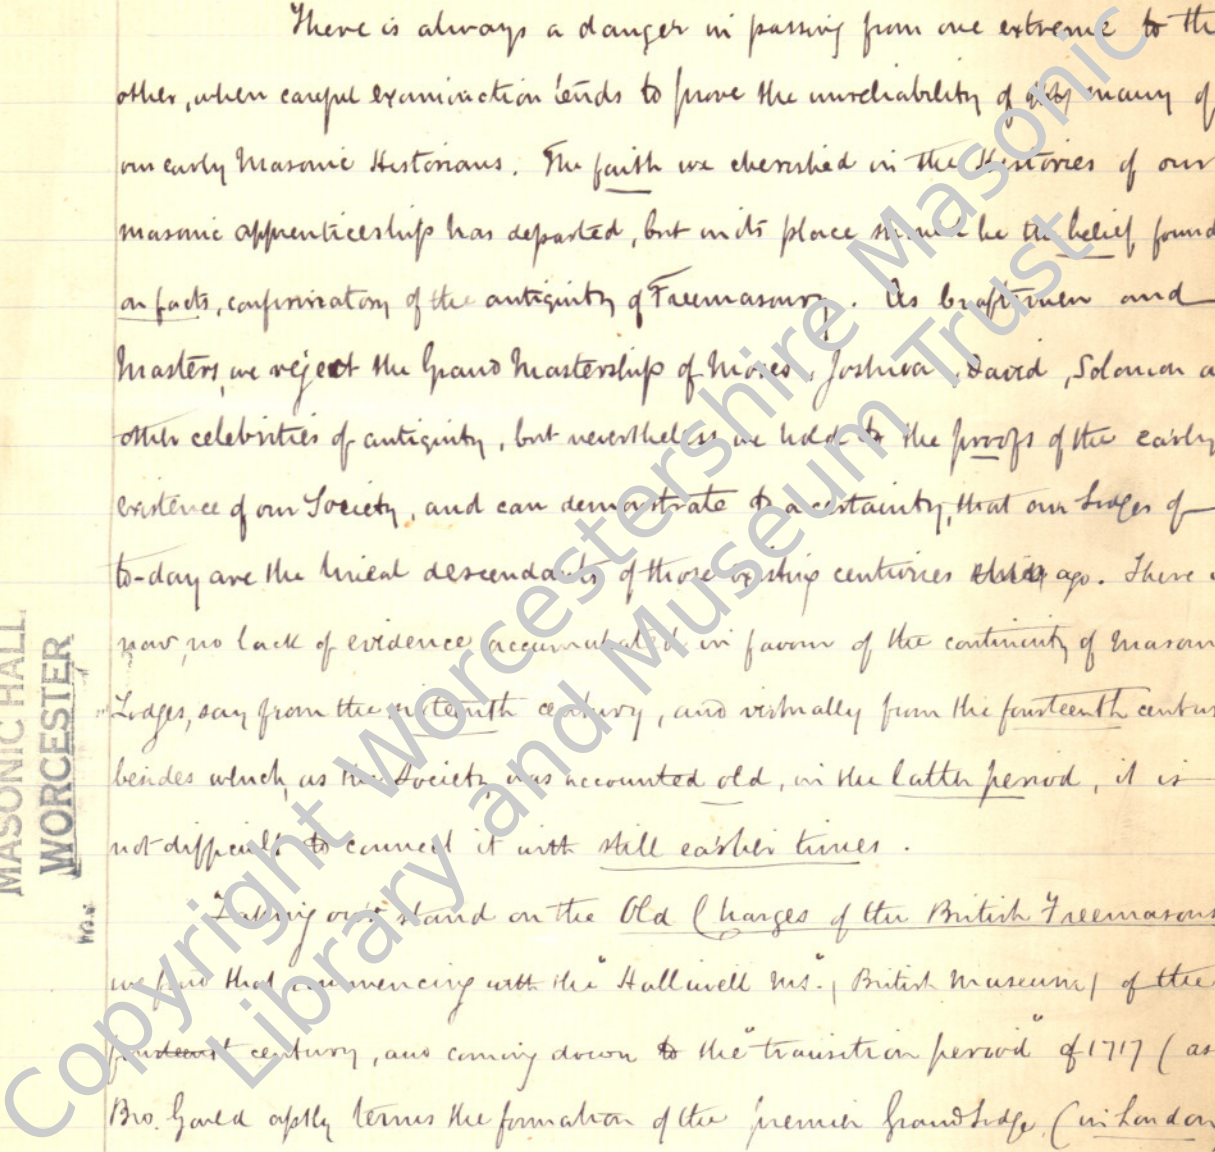 There is always a danger in passing from one extreme to th
other, when careful examination tends to prove the unreliability of many of
our early Masonic Historians. The faith we cherished in the Histories of our
masonic apprenticeship has departed, but in its place should be the belief, found
on facts, confirmatory of the antiquity of Freemasonry. As Craftsmen and
Masters, we reject the Grand Mastership of Moses, Joshua, David, Solomon a
other celebrities of antiquity, but nevertheless we hold to the proofs of the early
existence of our Society, and can demonstrate to a certainty, that our Lodges of
to-day are the lineal descendants of those existing centuries ago. There
now, no lack of evidence accumulated in favour of the continuity of Mason
Lodges, say from the sixteenth century, and virtually from the fourteenth centur
besides which, as the Society was accounted old, in the latter period, it is
not difficult to connect it with still earlier times.
"Taking our stand on the Old Charges of the British Freemasons
we find that commencing with the "Halliwell Ms." (British Museum) of the
century, and coming down to the "transition period" of 1717 (as
Bro. Gould aptly terms the formation of the premier Grand Lodge (in London
MASONIC HALL
WORCESTER
Copyright Worcestershire Masonic
Library and Museum Trust